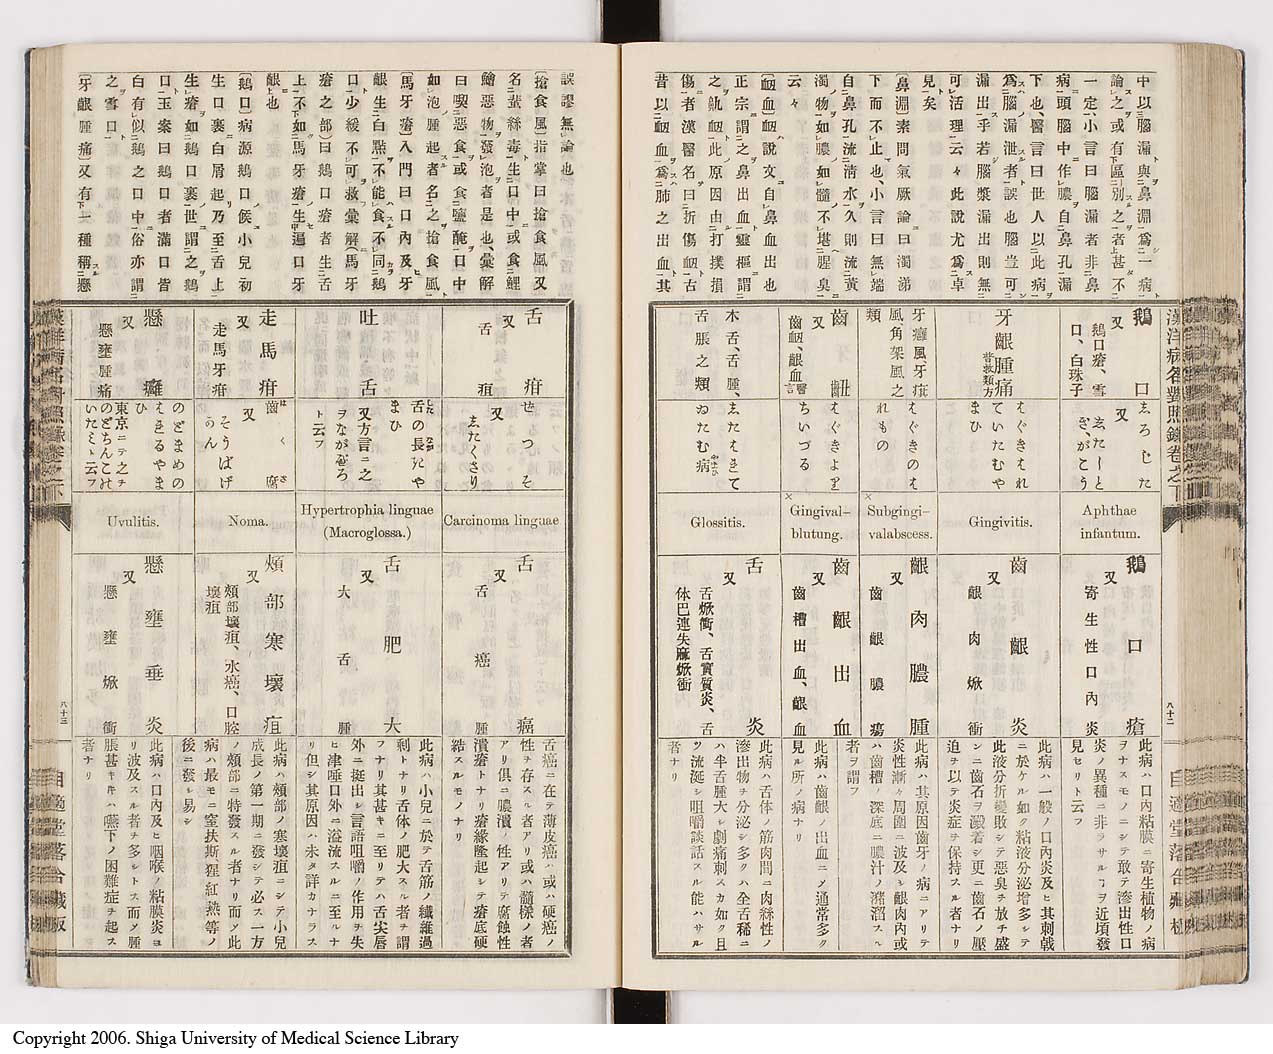 中以腦漏與鼻淵爲一病
論之或有下區別之者上甚不
一定小言曰腦漏者非鼻
病頭腦中作膿自鼻孔漏
下也醫言曰世人以此病
爲腦漏泄者誤也腦豈可
漏出乎若腦漿漏出則無
可活理云々此說尤爲卓
見矣
(鼻淵)素問氣厥論曰濁涕
下而不止也小言曰無端
自鼻孔流淸水久則流黃
濁物如膿如髓不堪腥臭
云々
(衂血)衂說文自鼻血出也
正宗謂之鼻出血靈樞謂
之鼽衂此原因由打撲損
傷者漢醫名曰折傷衂古
昔以衂血爲肺之出血其
鵝口
又
鵝口瘡、雪
口、白珠子
牙齦腫痛
普救類方
牙癰風牙疳
風角架風之
類
齒衄
又
齒衂、齦血
醫言
木舌、舌腫、
舌脹之類
ゑろじた
又
ゑたしと
ぎがこう
はぐきはれ
ていたむや
まひ
はぐきのは
れもの
はぐきより
ちいづる
ゑたはれて
ゐたむ病
Aphthae
infantum.
Gingivitis.
×
Subgingi-
valabscess.
×
Gingival-
blutung.
Glossitis.
鵝口瘡
又
寄生性口內炎
齒齦炎
又
齦肉焮衝
齦肉膿腫
又
齒齦膿瘍
齒齦出血
又
齒槽出血、齦血
舌炎
又
舌焮衝、舌實質炎、舌
体巴連失麻焮衝
此病ハ口內粘膜ニ寄生植物ノ病
ヲナスモノニシテ敢テ滲出性口
炎ノ異種ニ非ラサルヿヲ近頃發
見セリト云フ
此病ハ一般ノ口內炎及ヒ其刺戟
ニ於ケル如ク粘液分泌增多シテ
此液分折變敗シテ惡臭ヲ放チ盛
ンニ齒石ヲ澱着シ更ニ齒石ノ壓
迫ヲ以テ炎症ヲ保持スル者ナリ
此病ハ其原因齒牙ノ病ニアリテ
炎性漸々周圍ニ波及シ齦肉內或
ハ齒槽ノ深底ニ膿汁ノ瀦溜スル
者ヲ謂フ
此病ハ齒齦ノ出血ニメ通常多ク
見ル所ノ病ナリ
此病ハ舌体ノ筋肉間ニ肉絲性ノ
滲出物ヲ分泌シ多クハ全舌稀ニ
ハ半舌腫大シ劇痛刺スカ如ク且
ツ流涎シ咀嚼談話スル能ハサル
者ナリ
漢洋病名對照錄卷之下
八十二
自適堂落合藏板
誤謬無論也
(搶食風)指掌曰搶食風又
名蜚絲毒生口中或食鯉
鱠惡物發泡者是也彙解
曰喫惡食或食鹽醃口中
如泡腫起者名之搶食風
(馬牙瘡)入門曰口內及牙
齦生白點不能食不同鵝
口少緩不可救彙解(馬牙
瘡之部)曰鵝口瘡者生舌
上不如馬牙瘡生遍口牙
齦也
(鵝口)病源鵝口候小兒初
生口裏白屑起乃至舌上
生瘡如鵝口裏世謂之鵝
口玉案曰鵝口者滿口皆
白有似鵝之口中俗亦謂
之雪口
(牙齦腫痛)又有一種稱懸
舌疳
又
舌疽
吐舌
走馬疳
又
走馬牙疳
懸癰
又
懸壅腫痛
ぜつそ
又
ゑたくさり
舌の長きや
まひ
又方言ニ之
ヲながぢろ
ト云フ
齒くさ
又
そうばげ
かん
のどまめの
はれるやま
ひ
東京ニテ之ヲ
のどちんこの
いたミト云フ
Carcinoma linguae
Hypertrophia linguae
(Macroglossa.)
Noma.
Uvulitis.
舌癌
又
舌癌腫
舌肥大
又
大舌腫
頰部寒壞疽
又
頰部壞疽、水癌、口腔
壞疽
懸壅垂炎
又
懸壅焮衝
舌癌ニ在テ薄皮癌ハ或ハ硬癌ノ
性ヲ存スル者アリ或ハ髓樣ノ者
アリ俱ニ膿潰ノ性アリテ腐蝕性
潰瘡トナリ瘡緣隆起シテ瘡底硬
結スルモノナリ
此病ハ小兒ニ於テ舌筋ノ纖維過
剩トナリ舌体ノ肥大スル者ヲ謂
フナリ其甚キニ至リテハ舌尖唇
外ニ挺出シ言語咀嚼ノ作用ヲ失
ヒ津唾口外ニ溢流スルニ至ルナ
リ但シ其原因ハ未タ詳カナラス
此病ハ頰部ノ寒壞疽ニシテ小兒
成長ノ第一期ニ發シテ必ス一方
ノ頰部ニ特發スル者ナリ而ノ此
病ハ最モ窒扶斯猩紅熱等ノ
後ニ發シ易シ
此病ハ口內及ヒ咽喉ノ粘膜炎ヨ
リ波及スル者多シトス而ノ腫
脹甚キキハ嚥下ノ困難症ヲ起ス
者ナリ
八十三
自適堂落合藏板
Copyright 2006. Shiga University of Medical Science Library